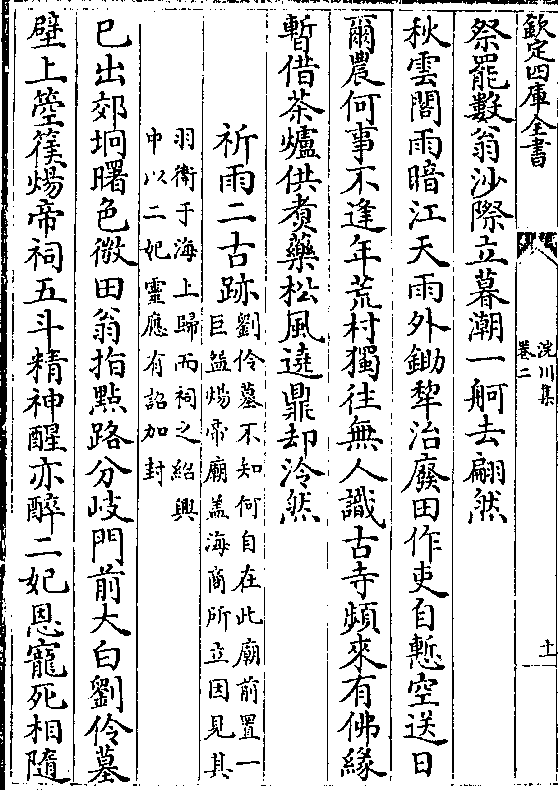 欽定四庫全書
浣川集
卷二
十一
祭罷數翁沙際立暮潮一舸去翩然
秋雲閣雨暗江天雨外鋤犂治廢田作吏自慙空送日
爾農何事不逢年荒村獨往無人識古寺頻來有佛緣
暫借茶爐供煮藥松風遶鼎却泠然
祈雨二古跡
劉伶墓不知何自在此廟前置一
巨盃煬帝廟蓋海商所立因見其
羽衛于海上歸而祠之紹興
中以二妃靈應有詔加封
已出郊坰曙色微田翁指點路分岐門前大白劉伶墓
壁上箜篌煬帝祠五斗精神醒亦醉二妃恩寵死相隨